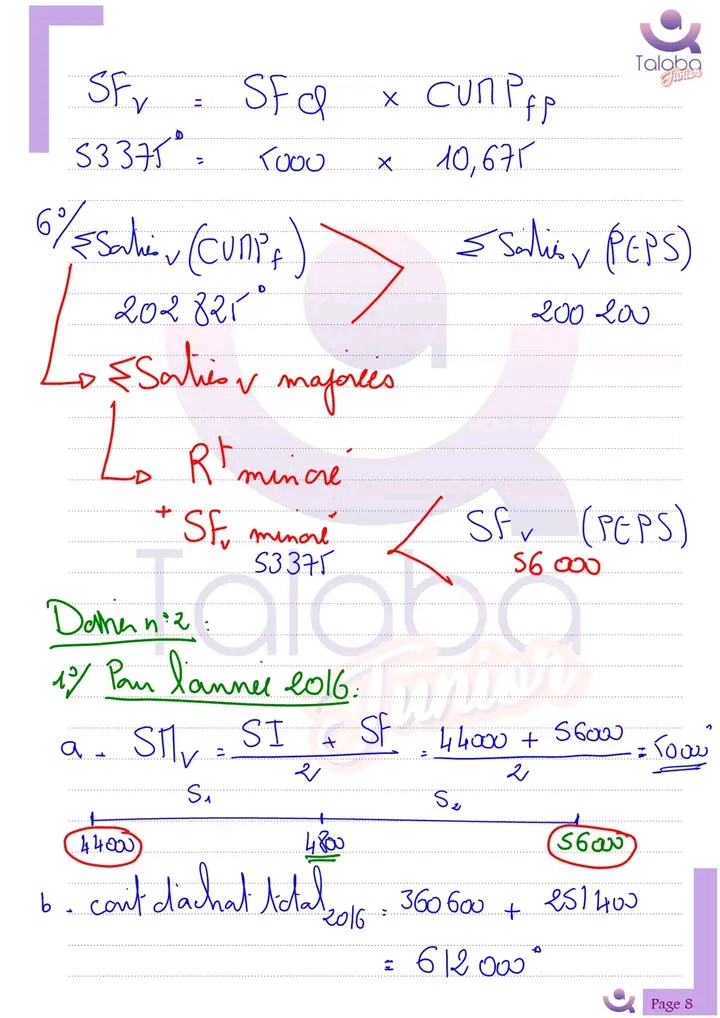 Taloba
Junior
SFv = SFQ × CUMPfp
53375ᴰ = 5000 × 10,675
6°/ ΣSorties v (CUMPf) > Σ Sorties v (PEPS)
202 825ᴰ 200 200
→ ΣSorties v majorées
→ Rt minoré
+ SFv minoré < SFv (PEPS)
53375 56 000
Taloba
Junior
Dossier n°2 :
1°/ Pour l'année 2016 :
a - SMv = SI + SF / 2 = 44000 + 56000 / 2 = 50000ᴰ
S1 S2
44000 4800 56000
b - coût d'achat total 2016 = 360 600 + 251 400
= 612 000ᴰ
Page 8